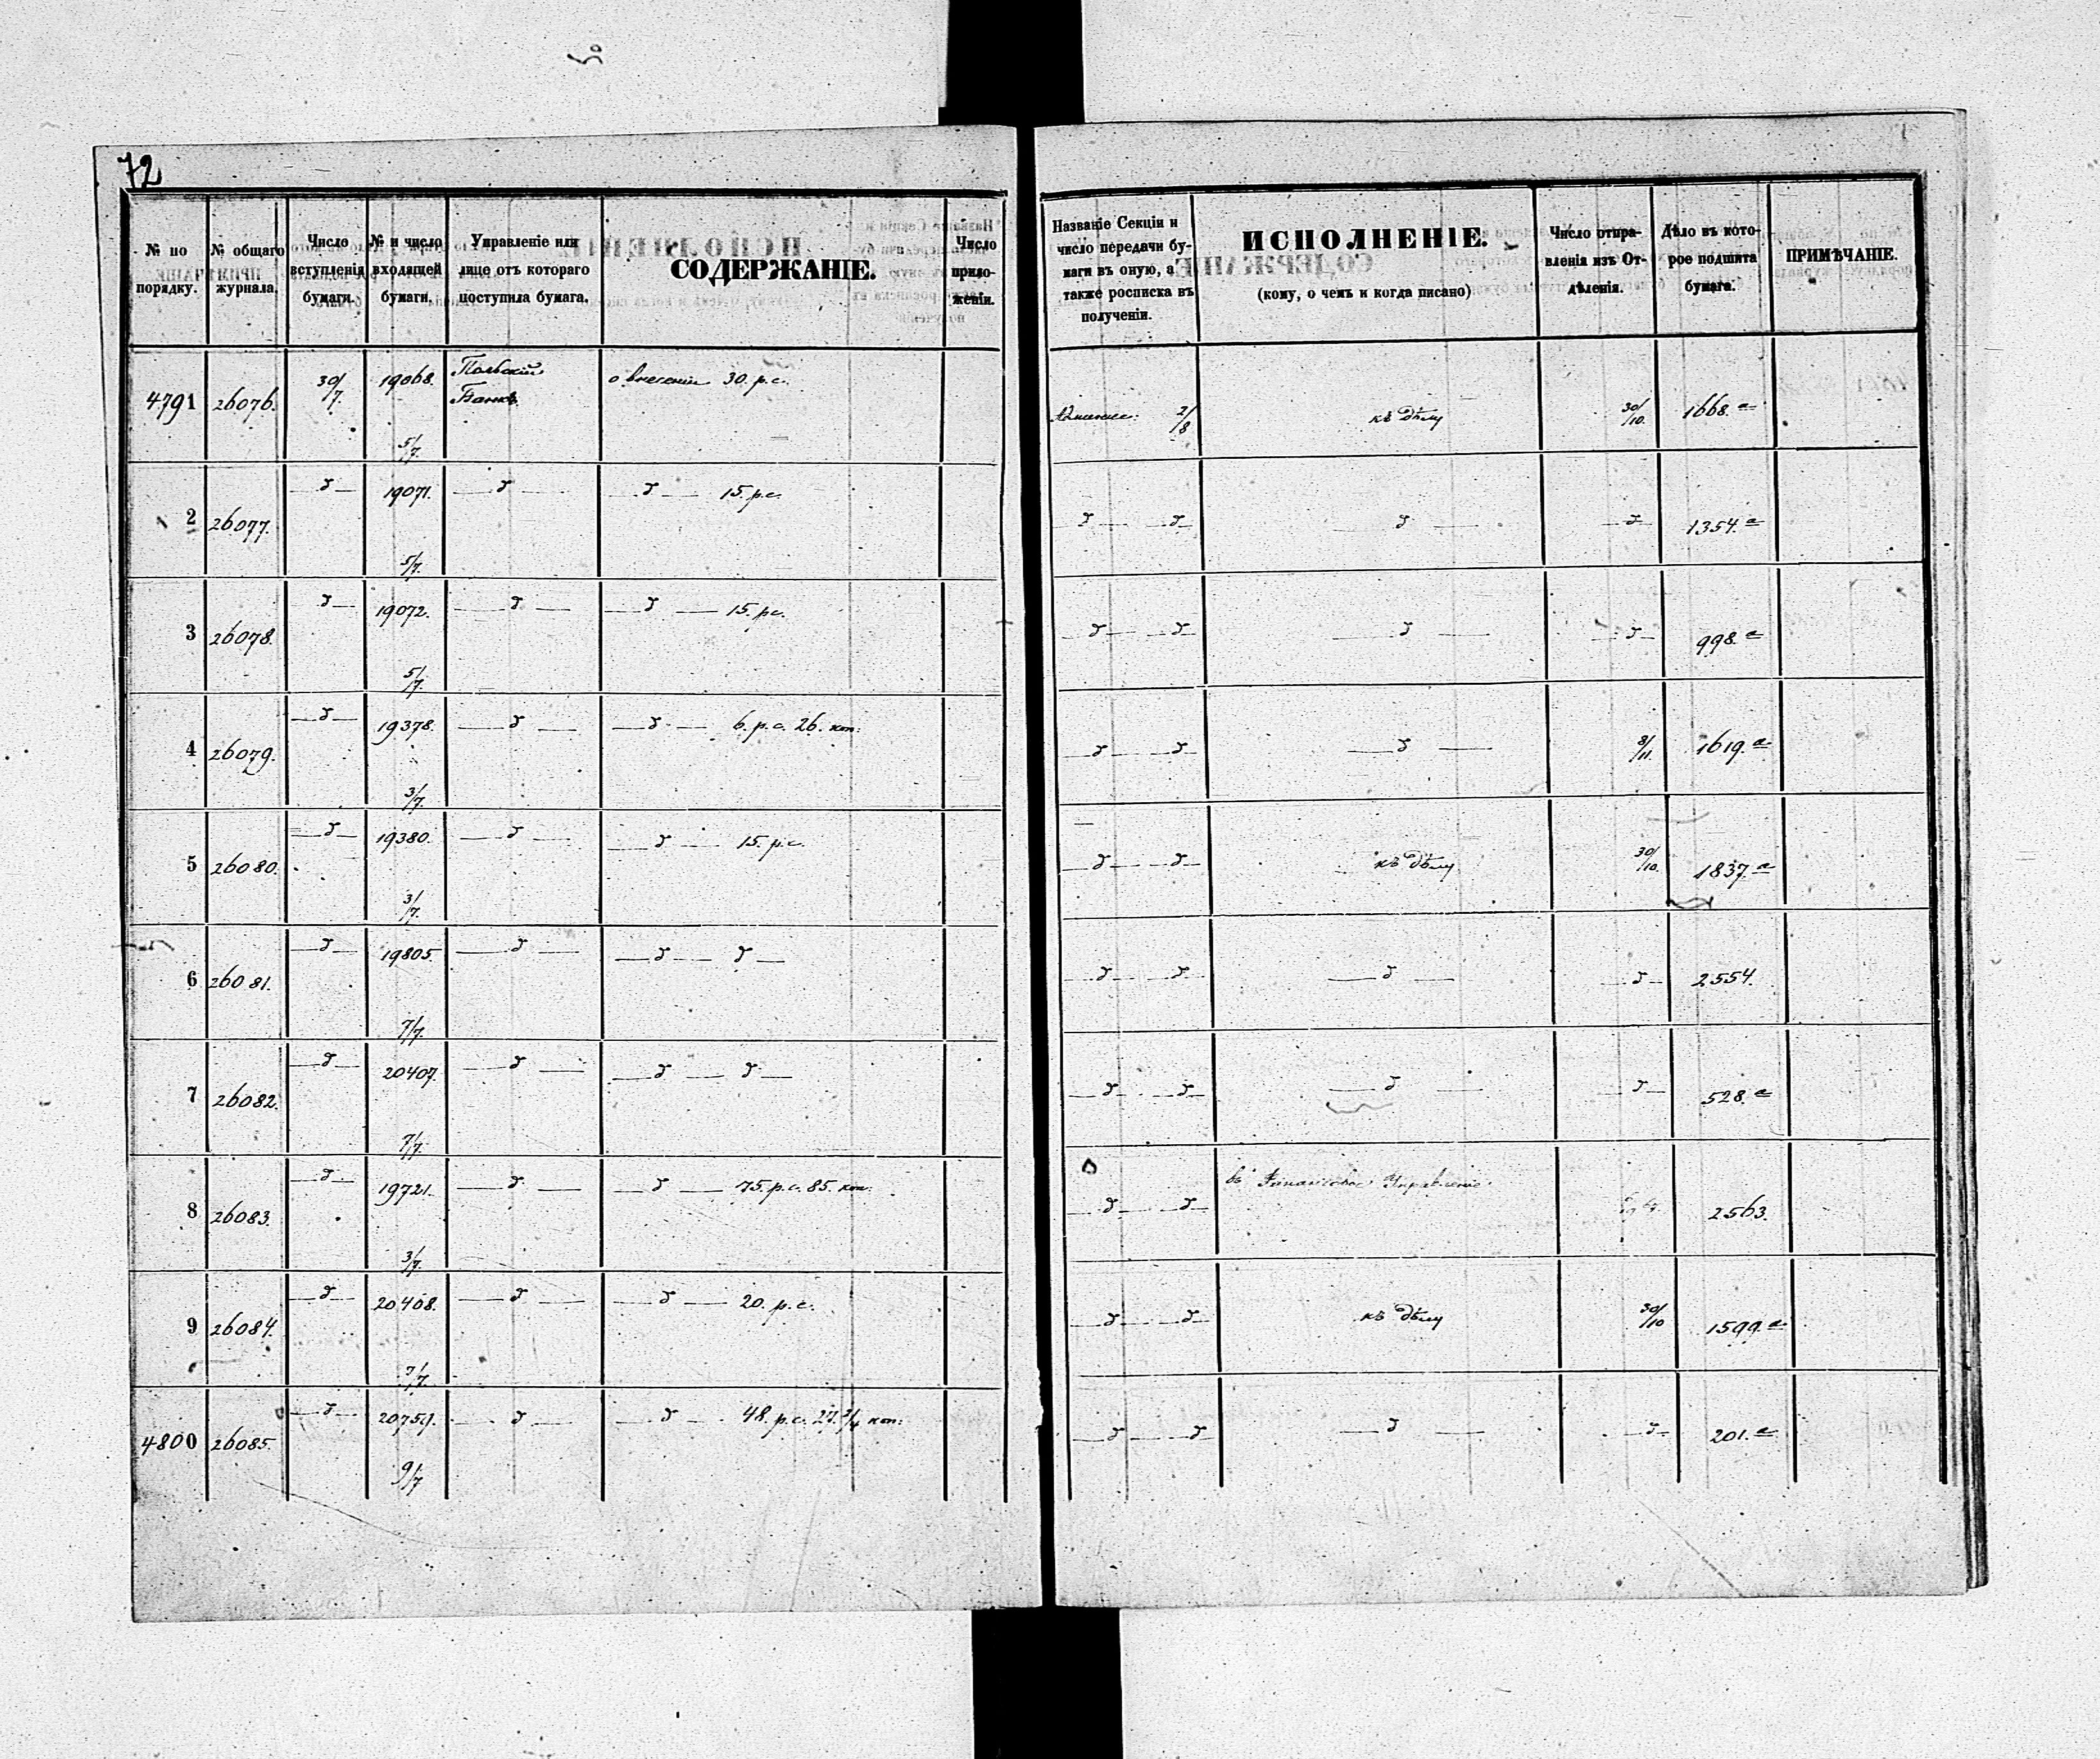 72
№ по порядку.
№ общаго журнала.
Число вступленія бумаги.
№ и число входящей бумаги.
Управленіе или лице отъ котораго поступила бумага.
СОДЕРЖАНІЕ.
Число приложеніи.
Названіе Секціи и число передачи бумаги въ оную, а также росписка въ полученіи.
ИСПОЛНЕНІЕ.
(кому, о чемъ и когда писано)
Число отправленія изъ Отдѣленія.
Дѣло въ которое подшита бумага.
ПРИМѢЧАНІЕ.
4791 26076. 30/7. 19068. 5/7. Польскій Банкъ. о внесеніи 30. р.с. 2/8 къ дѣлу 30/10. 1668.а
2 26077. — д — 19071. 5/7. — д — — д — 15. р.с. — д — — д — — д — — д — 1354.а
3 26078. — д — 19072. 5/7. — д — — д — 15. рс. — д — — д — — д — — д — 998.а
4 26079. — д — 19378. 3/7. — д — — д — 6. р.с. 26. коп. — д — — д — — д — 8/11. 1619.а
5 26080. — д — 19380. 3/7. — д — — д — 15. р.с. — д — — д — къ дѣлу 30/10. 1837.а
6 26081. — д — 19805. 7/7. — д — — д — — д — — д — — д — — д — — д — 2554.
7 26082. — д — 20407. 7/7. — д — — д — — д — — д — — д — — д — — д — 528.а
8 26083. — д — 19721. 3/7. — д — — д — 75. р.с. 85. коп. — д — — д — въ Финансовое Управленіе 2563.
9 26084. — д — 20408. 7/7. — д — — д — 20. р.с. — д — — д — къ дѣлу 30/10 1599.а
4800 26085. — д — 20759. 9/7 — д — — д — 48. р.с. коп. — д — — д — — д — — д — 201.а